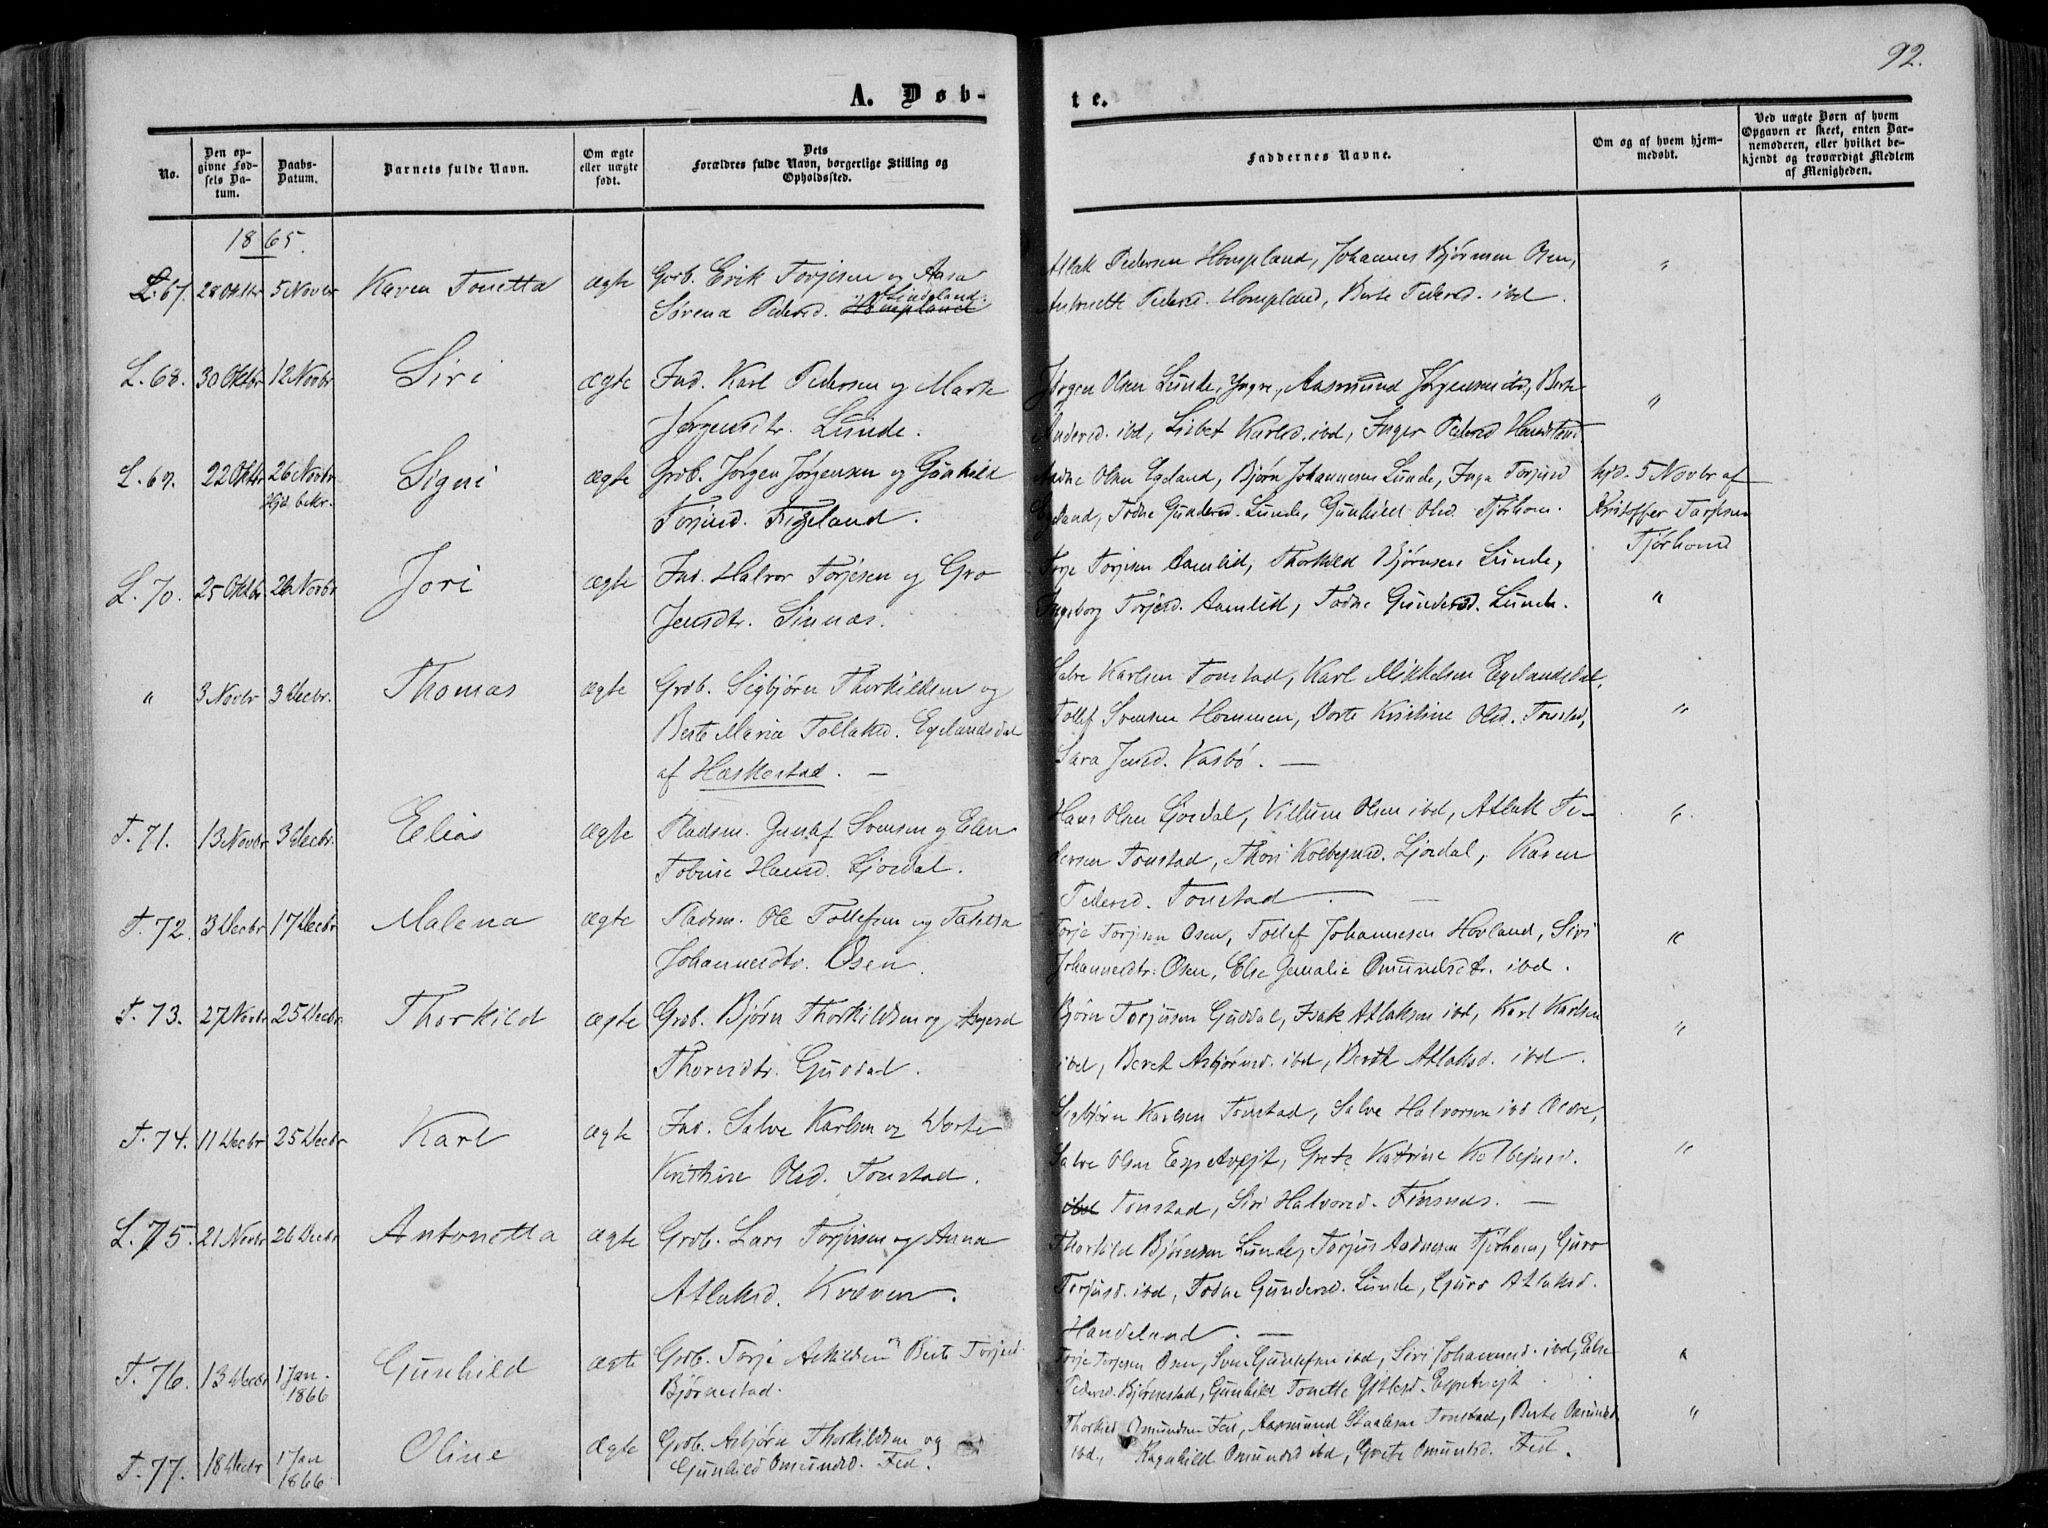 92.
A. Døb-
te.
No.
Den op-
givne Fød-
sels Da-
tum.
Daabs-
Datum.
Barnets fulde Navn.
Om ægte
eller uægte
født.
Dets
Forældres fulde Navn, borgerlige Stilling og
Opholdssted.
Faddernes Navne.
Om og af hvem hjem-
medøbt.
Ved uægte Børn af hvem
Opgaven er skeet, enten Bar-
nemoderen, eller hvilket be-
kjendt og troværdigt Medlem
af Menigheden.
1865.
L. 67. 28 Oktbr 5 Novbr Karen Tonetta ægte Grdb. Erik Torjesen og Aasa
Sørena Pedersd. Lindeland.
Atlak Pedersen Hompland, Johannes Bjørnsen Osen,
Antonette Pedersd. Hompland, Berte Pedersd. ibd. "
L. 68. 30 Oktbr 12 Novbr Siri ægte Ind. Karl Pedersen og Marte
Jørgensdtr. Lunde.
Jørgen Olsen Lunde, Yngre, Aasmund Jørgensen ibd, Berte
Andersd. ibd, Lisbet Karlsd. ibd, Inger Pedersd "
L. 69. 22 Oktbr 26 Novbr Signi ægte Grdb. Jørgen Jørgensen og Gunhild
Hjd. bekr.
Torjusd. Egeland.
Aadne Olsen Egeland, Bjørn Johannesen Lunde, Inga Torjusd
Egeland, Todne Gundersd. Lunde, Gunhild Olsd. Tjørhom.
hjd. 5 Novbr af
Kristoffer Torjesen
Tjørhom
L. 70. 25 Oktbr 26 Novbr Jori ægte Ind. Halvor Torjesen og Gro
Jensdtr. Sinnæs.
Torje Torjesen Aamlid, Thorkild Bjørnsen Lunde,
Ingeborg Torjesd. Aamlid, Todne Gundersd. Lunde. "
" 3 Novbr 3 Decbr. Thomas ægte Grdb. Sigbjørn Thorkildsen og
Berte Maria Tollaksd. Egelandsdal
af Heskestad. —
Salve Karlsen Tonstad, Karl Mikkelsen Egelandsdal,
Tollef Svensen Hommen, Dorte Kristine Olsd. Tonstad,
Sara Jensd. Vasbø. — "
T. 71. 13 Novbr 3 Decbr. Elias ægte Pladsm. Gunlef Svensen og Elen
Tobine Hansd. Gjosdal.
Hans Olsen Gjosdal, Villum Olsen ibd, Atlak Pe-
dersen Tonstad, Thori Kolbejnsd. Gjosdal, Karen
Pedersd. Tonstad. — "
T. 72. 3 Decbr 17 Decbr Malena ægte Pladsm. Ole Tollefsen og
Johannesdtr. Osen.
Torje Torjesen Osen, Tollef Johannesen Hovland, Siri
Johannesdtr. Osen, Else Omundsdtr. ibd. "
T. 73. 27 Novbr 25 Decbr. Thorkild ægte Grdb. Bjørn Thorkildsen og
Thoresdtr. Guddal.
Bjørn Torjusen Guddal, Isak Atlaksen ibd, Karl Karlsen
ibd, Beret Asbjørnsd. ibd, Berte Atlaksd. ibd. "
T. 74. 11 Decbr 25 Decbr Karl ægte Ind. Salve Karlsen og Dorte
Kristine Olsd. Tonstad.
Sigbjørn Karlsen Tonstad, Salve Halvorsen ibd Oldre,
Salve Olsen Espetvejt, Grete Katrine Kolbejnsd.
Tonstad, Siri Halvorsd. Finsnæs. — "
L. 75. 21 Novbr 26 Decbr Antonetta ægte Grdb. Lars Torjusen og Anna
Atlaksd. Kvæven.
Thorkild Bjørnsen Lunde, Torjus Aadnesen Tjørhom, Guro
Torjusd. ibd, Todne Gundersd. Lunde, Guro Atlaksd.
Handeland. —
T. 76. 13 Decbr 1 Jan.
1866 Gunhild ægte Grdb. Torje Askildsen og Berte Torjesd.
Bjørnestad.
Torje Torjesen Osen, Sven Gunlefsen ibd, Siri Johannesd. ibd, Else
Pedersd. Bjørnestad, Gunhild Tonette Espetvejt. "
T. 77. 18 Decbr 1 Jan
1866 Oline Ægte Grdb. Asbjørn Thorkildsen og
Gunhild Omundsd. Fed.
Thorkild Omundsen Fed, Aasmund Tonstad, Berte Omundsd
ibd, Ragnhild Omundsd ibd, Grete Omundsd. Fed. "